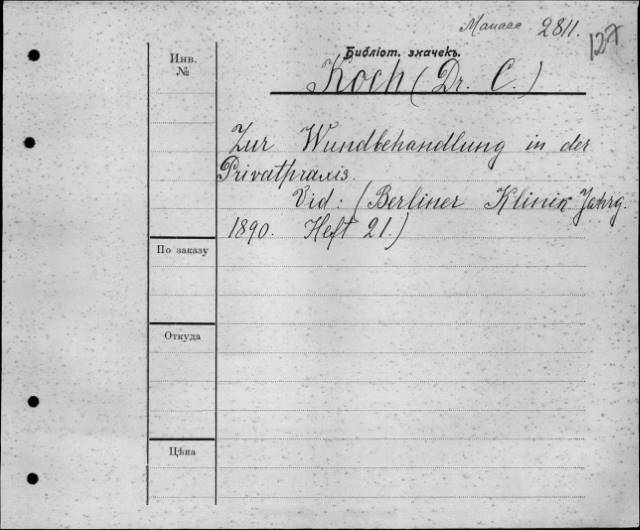 2811.
127
Библіот. значекъ.
Инв.
№
Koch (Dr. C.)
Zur Wundbehandlung in der
Privatpraxis.
Vid: (Berliner Klinik Jahrg.
1890. Heft 21.)
По заказу
Откуда
Цѣна